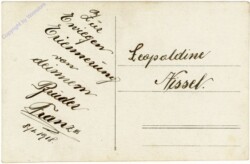 Zur
Ewigen
Erinnerung
von
deinem
Bruder
Franzn
Leopoldine
Nessel.